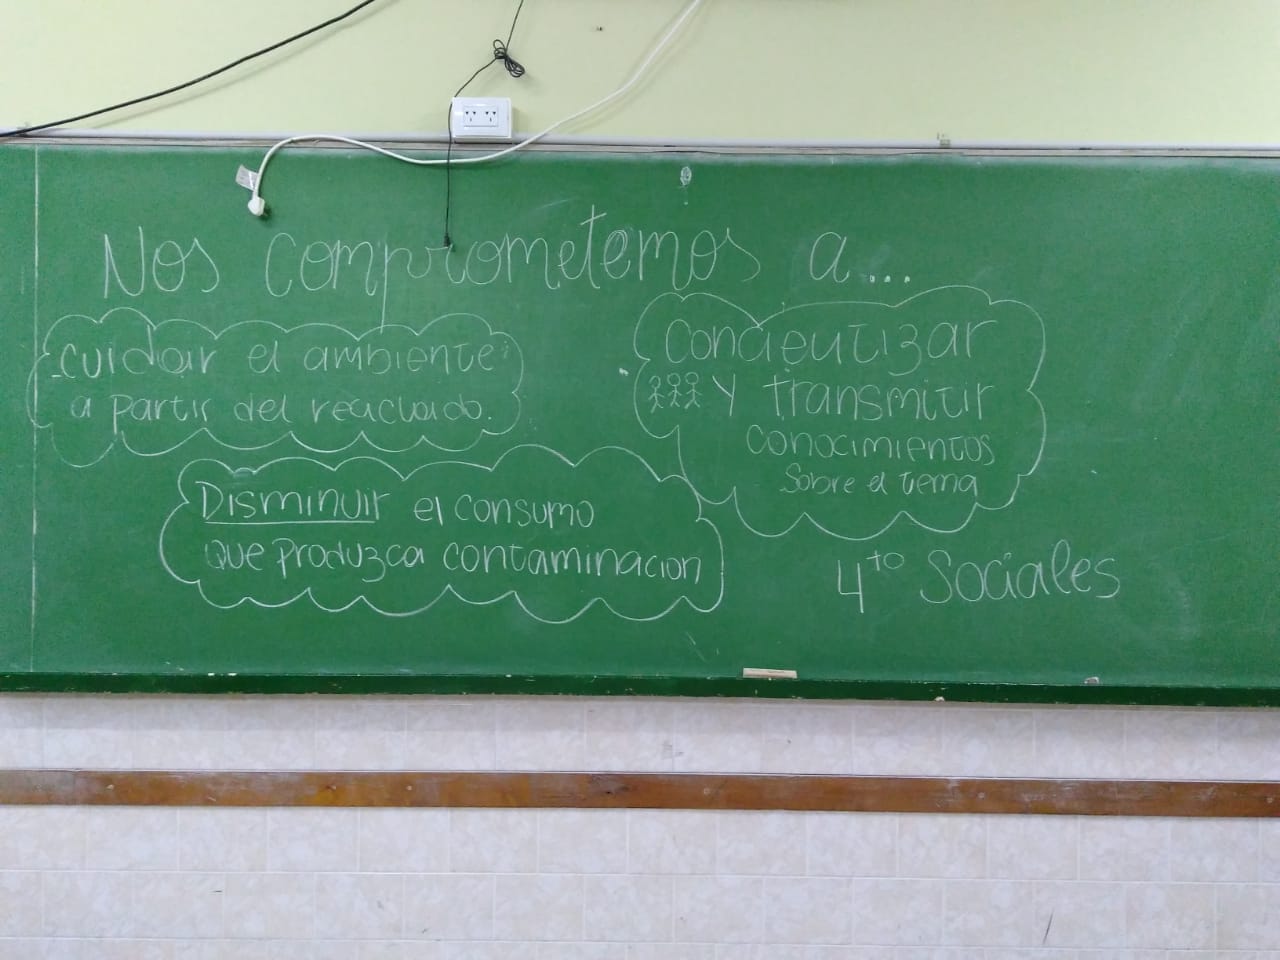 Nos comprometemos a...
cuidar el ambiente
a partir del reciclado.
Concientizar
y transmitir
conocimientos
sobre el tema
Disminuir el consumo
que produzca contaminacion
4to Sociales